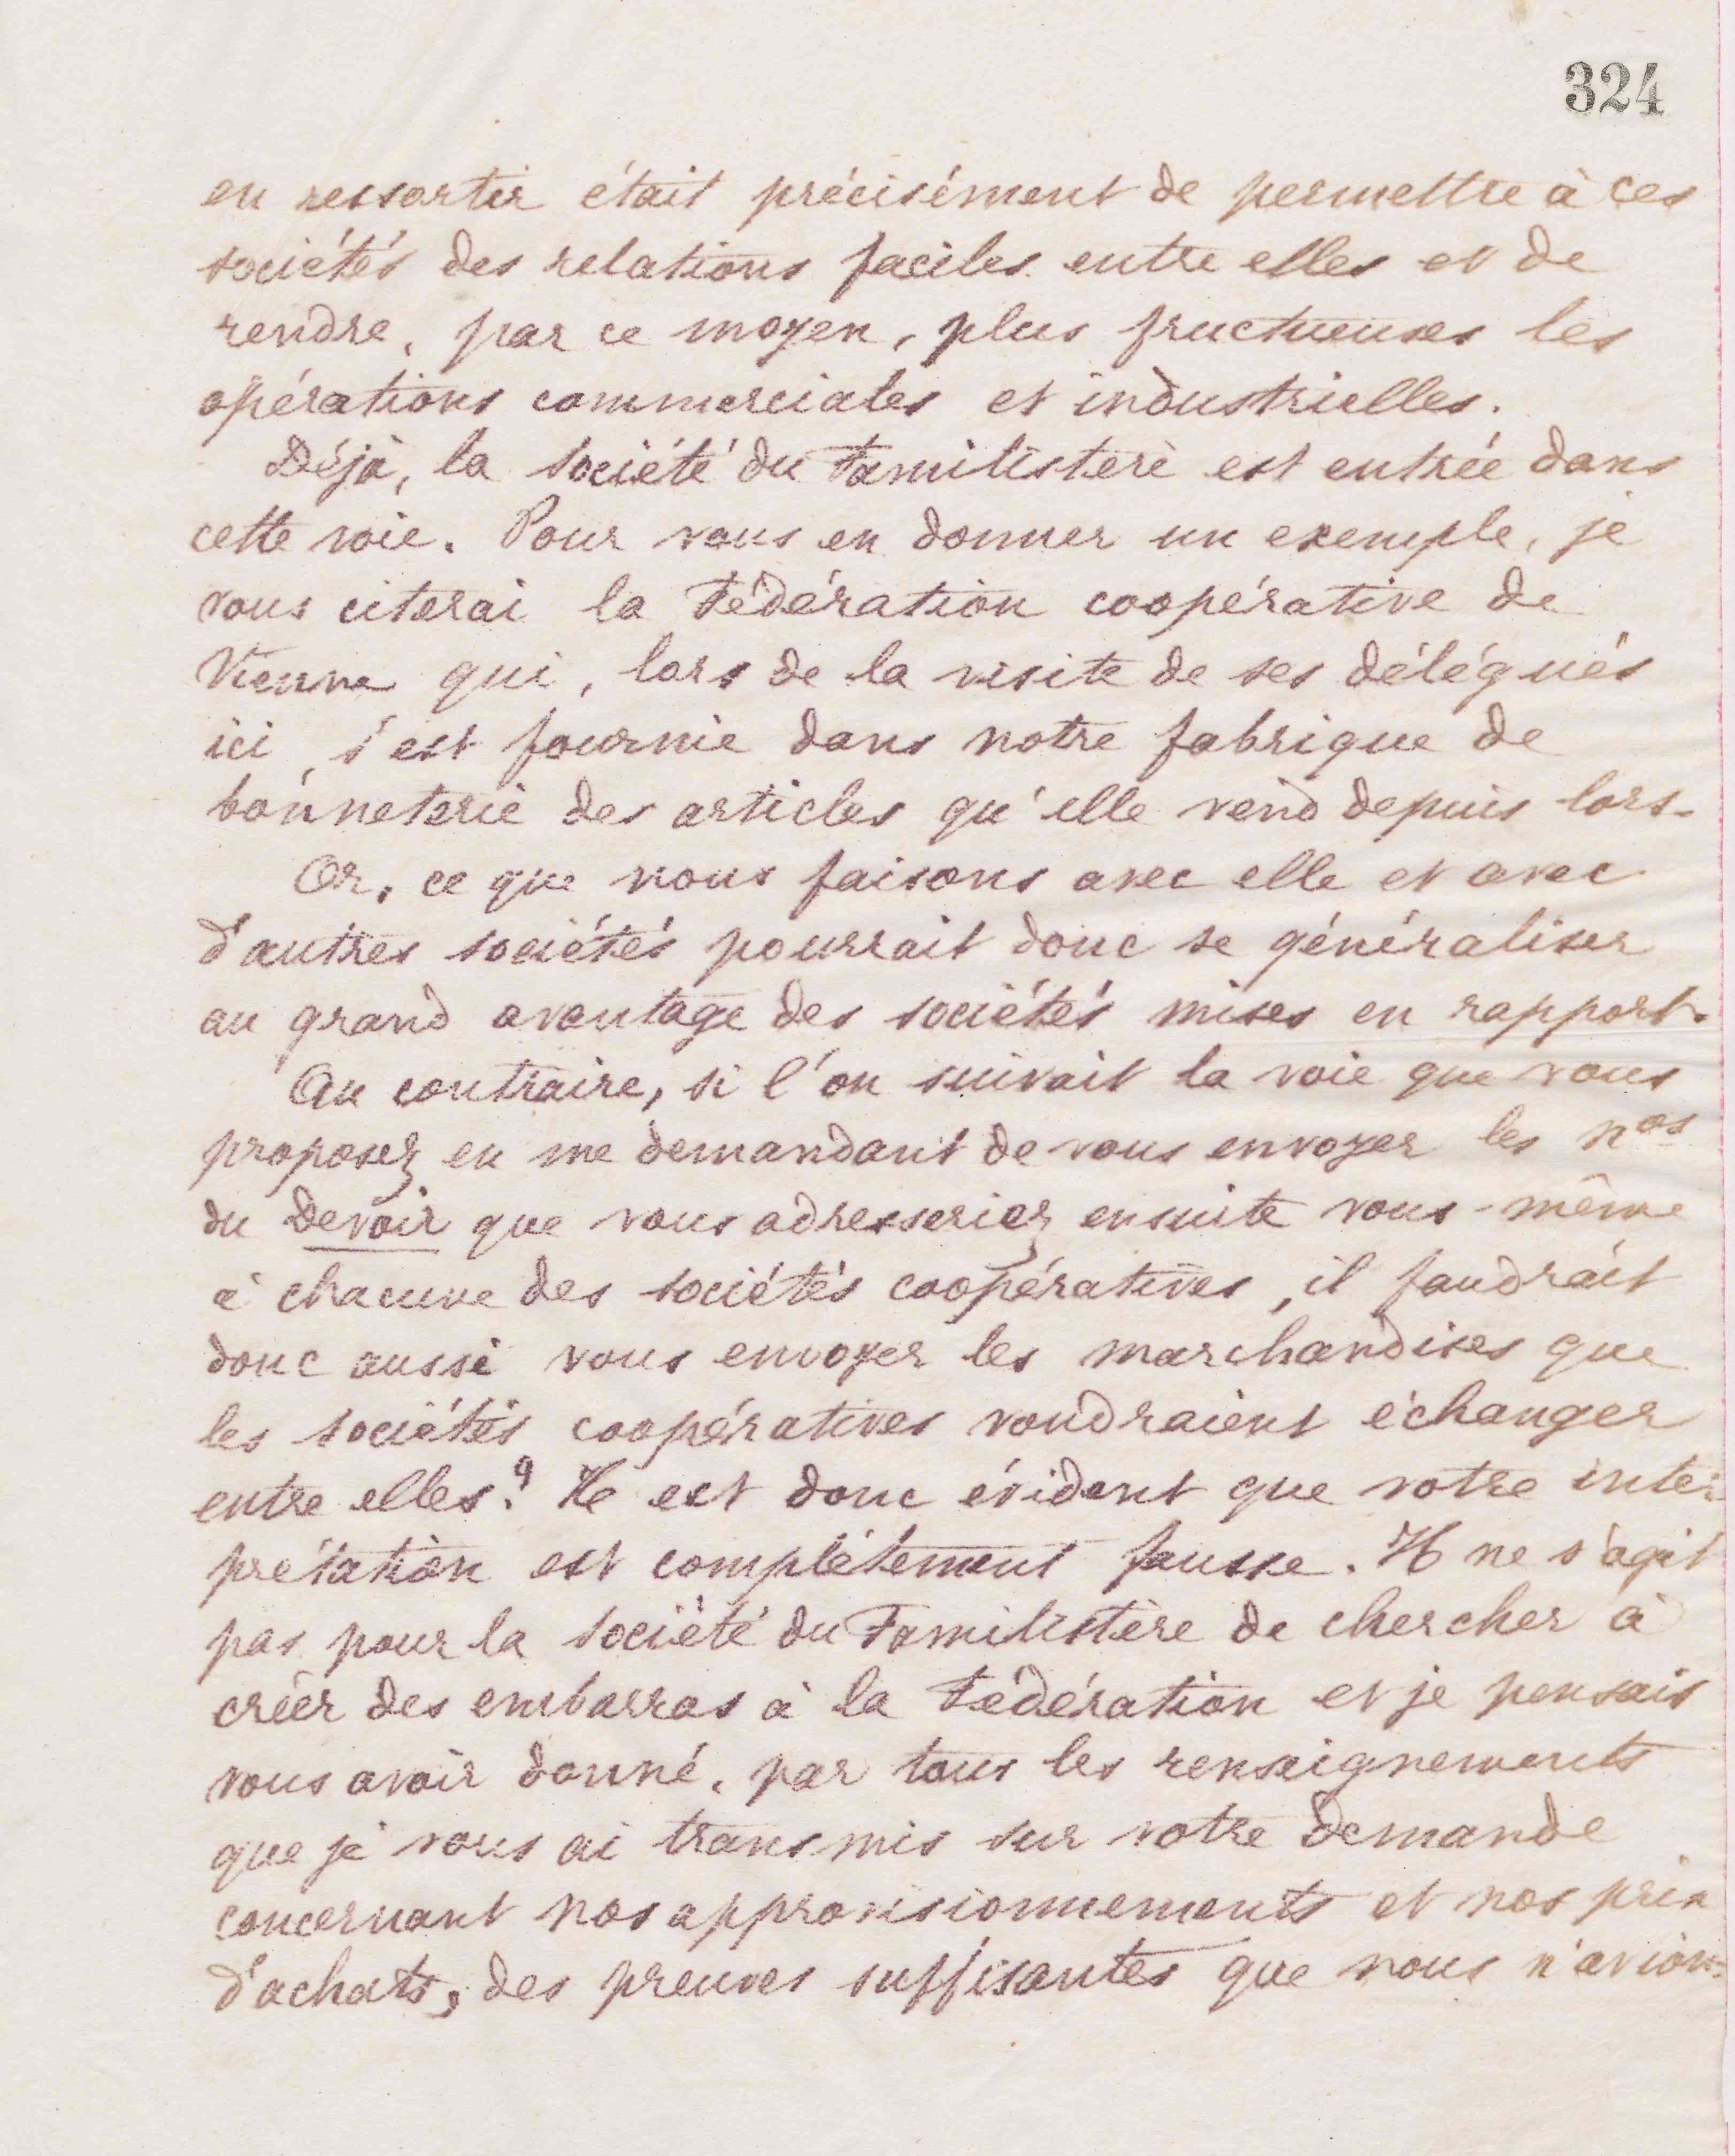 324
en ressortir était précisément de permettre à ces
sociétés des relations faciles entre elles et de
rendre, par ce moyen, plus fructueuses les
opérations commerciales et industrielles.
Déjà, la Société du Familistère est entrée dans
cette voie. Pour vous en donner un exemple, je
vous citerai la Fédération coopérative de
Vienne qui, lors de la visite de ses délégués
ici, s'est fournie dans notre fabrique de
bonneterie des articles qu'elle vend depuis lors.
Or, ce que nous faisons avec elle et avec
d'autres sociétés pourrait donc se généraliser
au grand avantage des sociétés mises en rapport.
Au contraire, si l'on suivait la voie que vous
proposez en me demandant de vous envoyer les nos
du Devoir que vous adresseriez ensuite vous-même
à chacune des sociétés coopératives, il faudrait
donc aussi vous envoyer les marchandises que
les sociétés coopératives voudraient échanger
entre elles? Il est donc évident que votre inter-
prétation est complètement fausse. Il ne s'agit
pas pour la Société du Familistère de chercher à
créer des embarras à la Fédération et je pensais
vous avoir donné, par tous les renseignements
que je vous ai transmis sur votre demande
concernant nos approvisionnements et nos prix
d'achats, des preuves suffisantes que nous n'avions